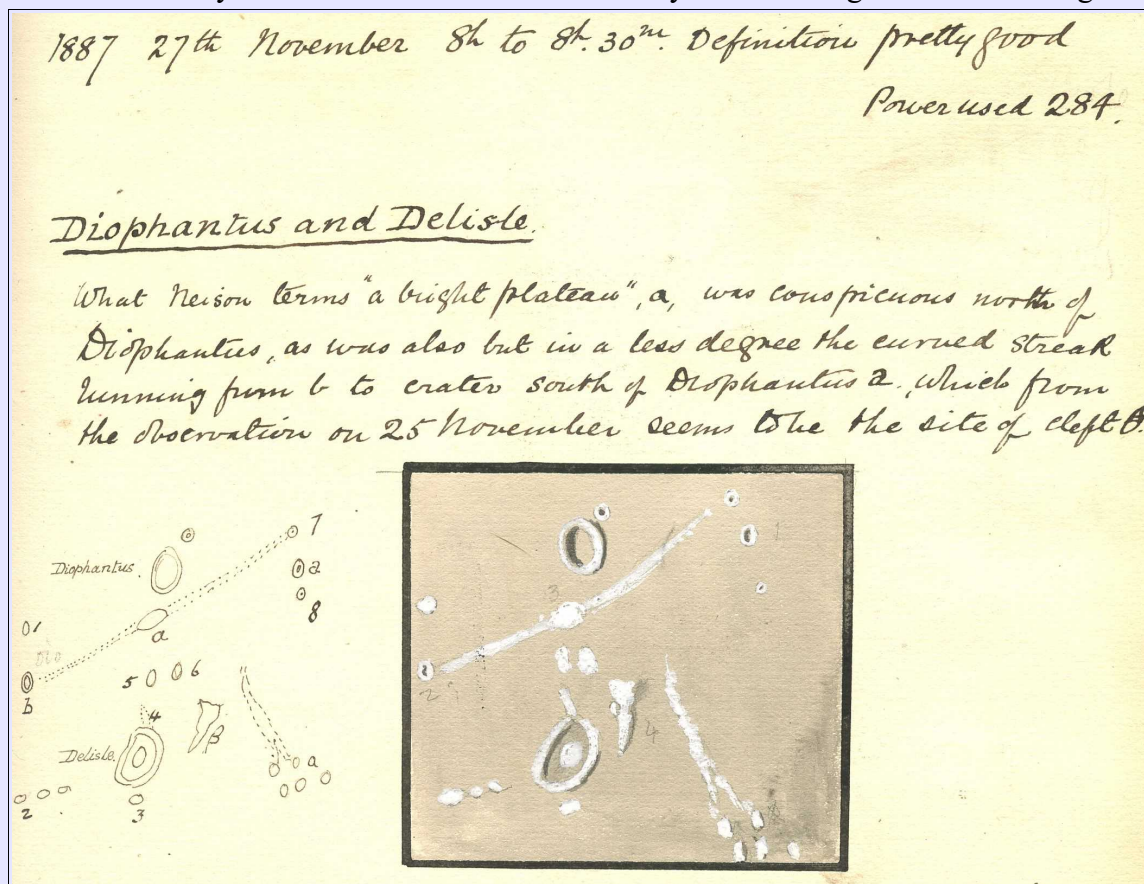 1887 27th November 8h to 8h.30m. Definition pretty good
Power used 284.
Diophantus and Delisle.
What Neison terms "a bright plateau", a, was conspicuous north of
Diophantus, as was also but in a less degree the curved streak
running from b to crater south of Diophantus a, which from
the observation on 25 November seems to be the site of cleft
7
Diophantus.
a
8
1
a
b
5
6
4
β
Delisle.
a
2
3
1
3
2
4
8